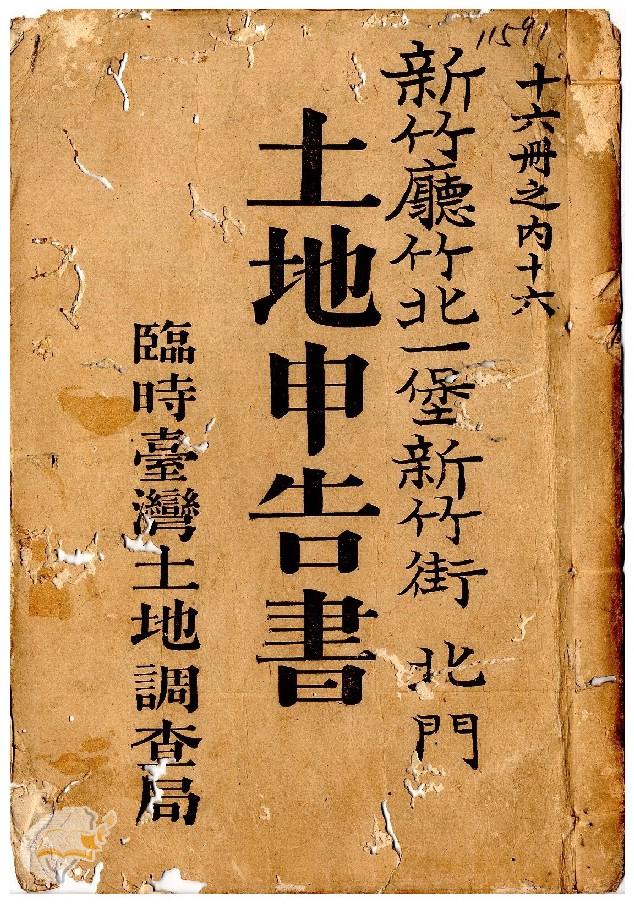 11591
十六冊之内十六
新竹廳竹北一堡新竹街 北門
土地申告書
臨時臺灣土地調查局